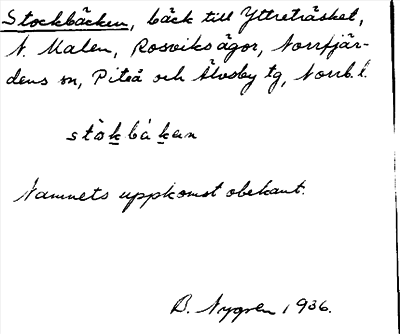 Stockbäcken, bäck till Yttreträsket,
N. Malen, Rosviks ägor, Norrfjär-
dens sn, Piteå och Älvsby tg, Norrb. l.
stòkbákan
Namnets uppkomst obekant.
B. Nygren 1936.